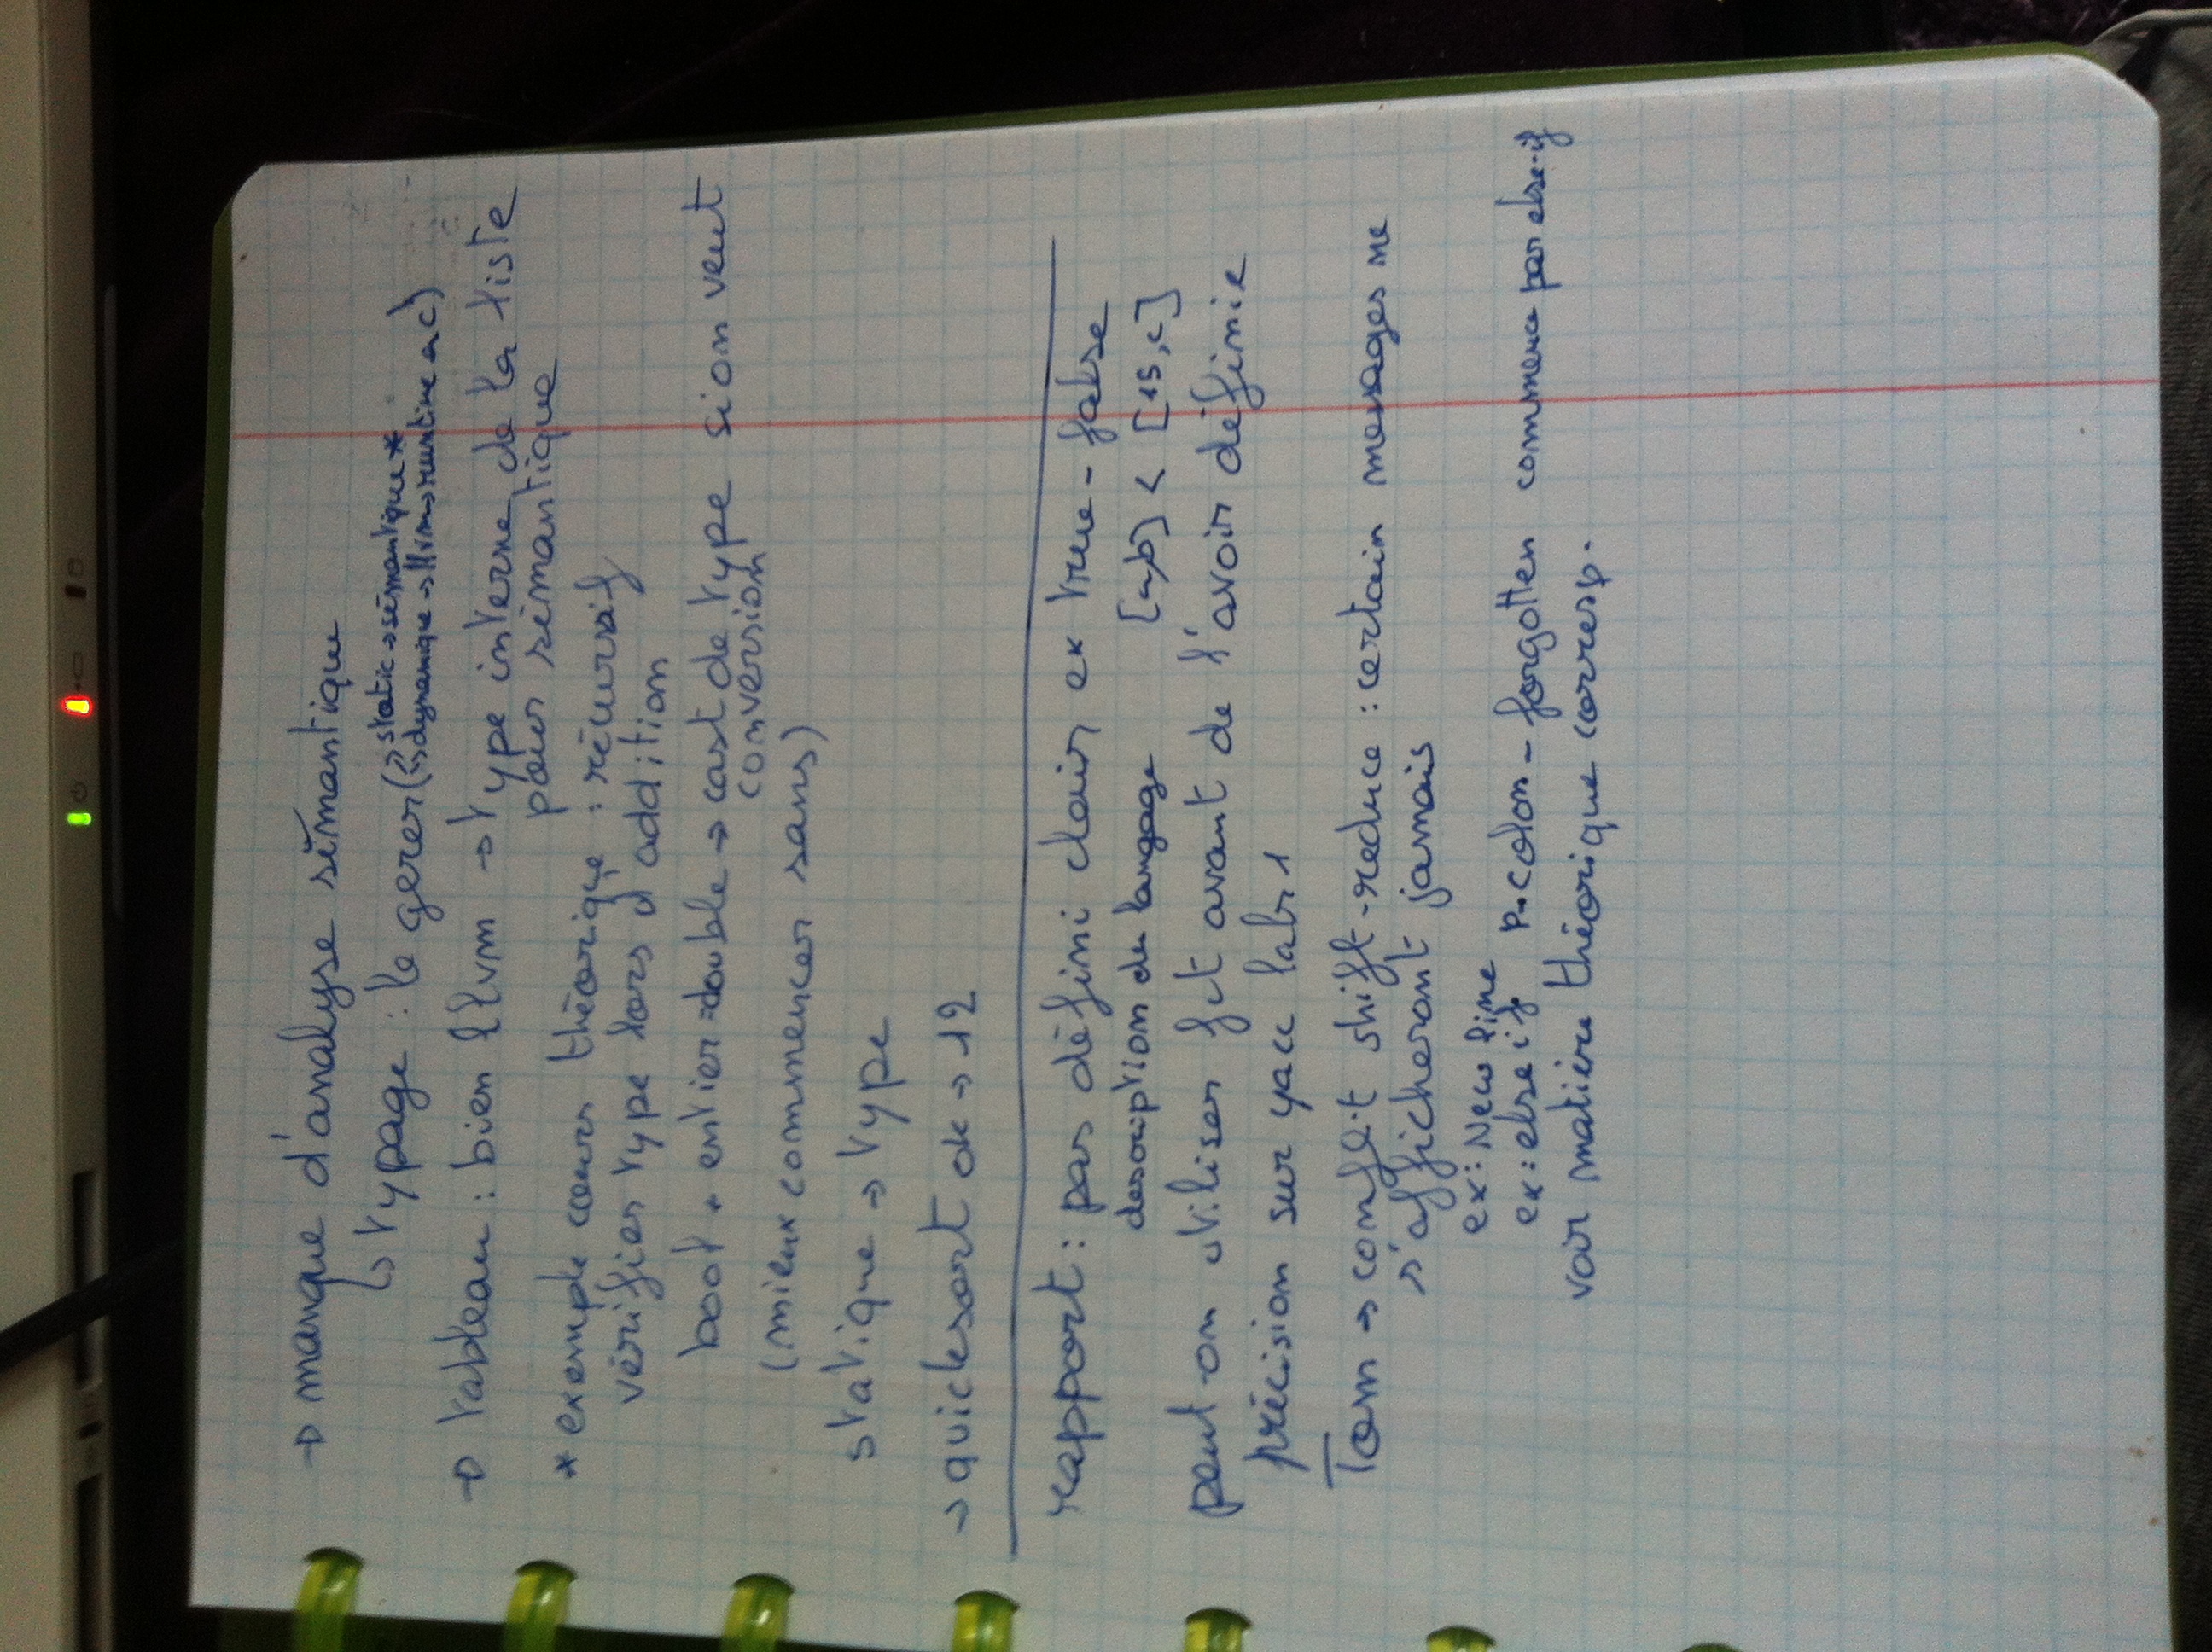 → manque d'analyse sémantique
↳ typage : le gerer (↳ static → sémantique *
↳ dynamique → llvm → runtime en C)
→ tableau : bien llvm → type interne de la liste
pour sémantique
* exemple cours théorique : récursif
vérifier type lors d'addition
bool + entier = double → cast de type si on veut
conversion
(mieux commencer sans)
statique → type
→ quicksort ok → 12
rapport : pas défini clair, ex true - false
description du langage [a,b] < [15,c]
peut-on utiliser fct avant de l'avoir définie
précision sur yacc labr 1
Tom → conflit shift-reduce : certain messages ne
s'afficheront jamais
ex: New line
ex: else if p-colon-forgotten commence par else-if
voir matière théorique corresp.